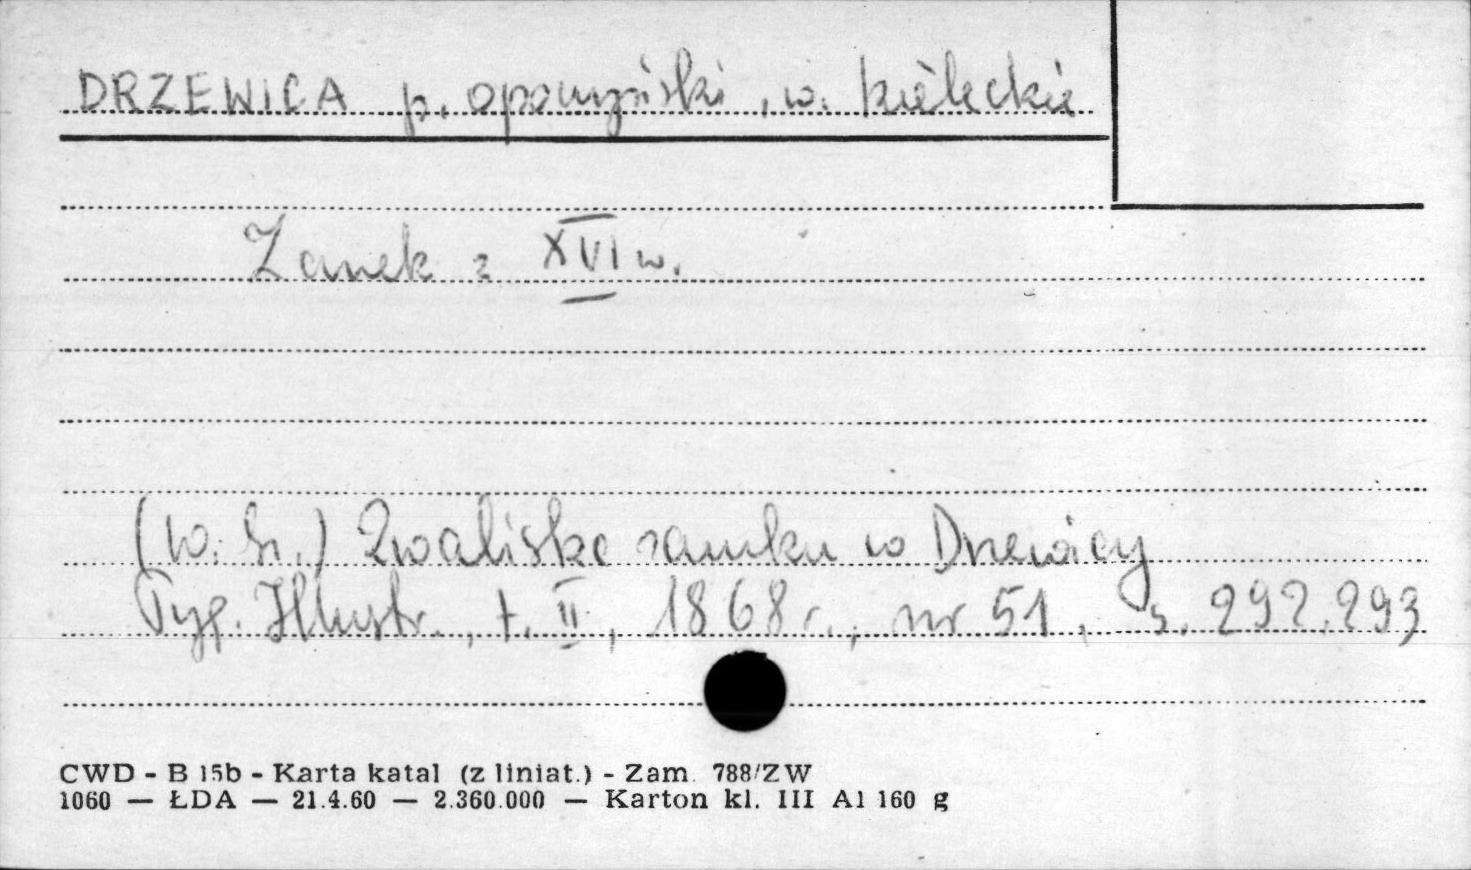 DRZEWICA p. opoczyński, w. kieleckie
Zamek z XVI w.
(W. G.) Zwaliska zamku w Drzewicy
Tyg. Illustr., t. II, 1868 r., nr 51, s. 292,293
CWD - B 15b - Karta katal (z liniat.) - Zam. 788/ZW
1060 — ŁDA — 21.4.60 — 2.360.000 — Karton kl. III A1 160 g